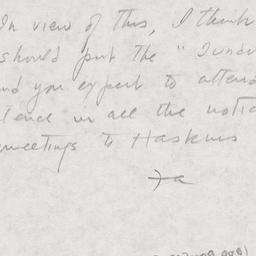 In view of this, I think
should put the "Sundry
and you expect to attend
tence in all the notic
meetings to Haskins